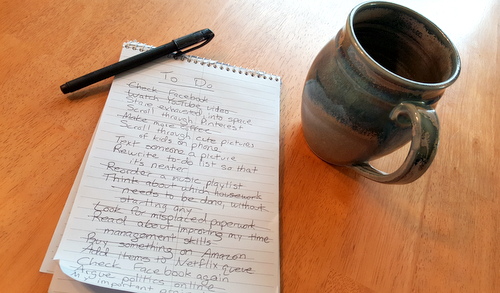 To Do
Check Facebook
Watch YouTube video
Stare exhausted into space
Scroll through Pinterest
Make more coffee
Scroll through cute pictures
of kids on phone
Text someone a picture
Rewrite to-do list so that
it's neater
Reorder a music playlist
Think about which housework
needs to be done, without
starting any
Look for misplaced paperwork
Read about improving my time
management skills
Buy something on Amazon
Add items to Netflix queue
Check Facebook again
Argue politics online
important